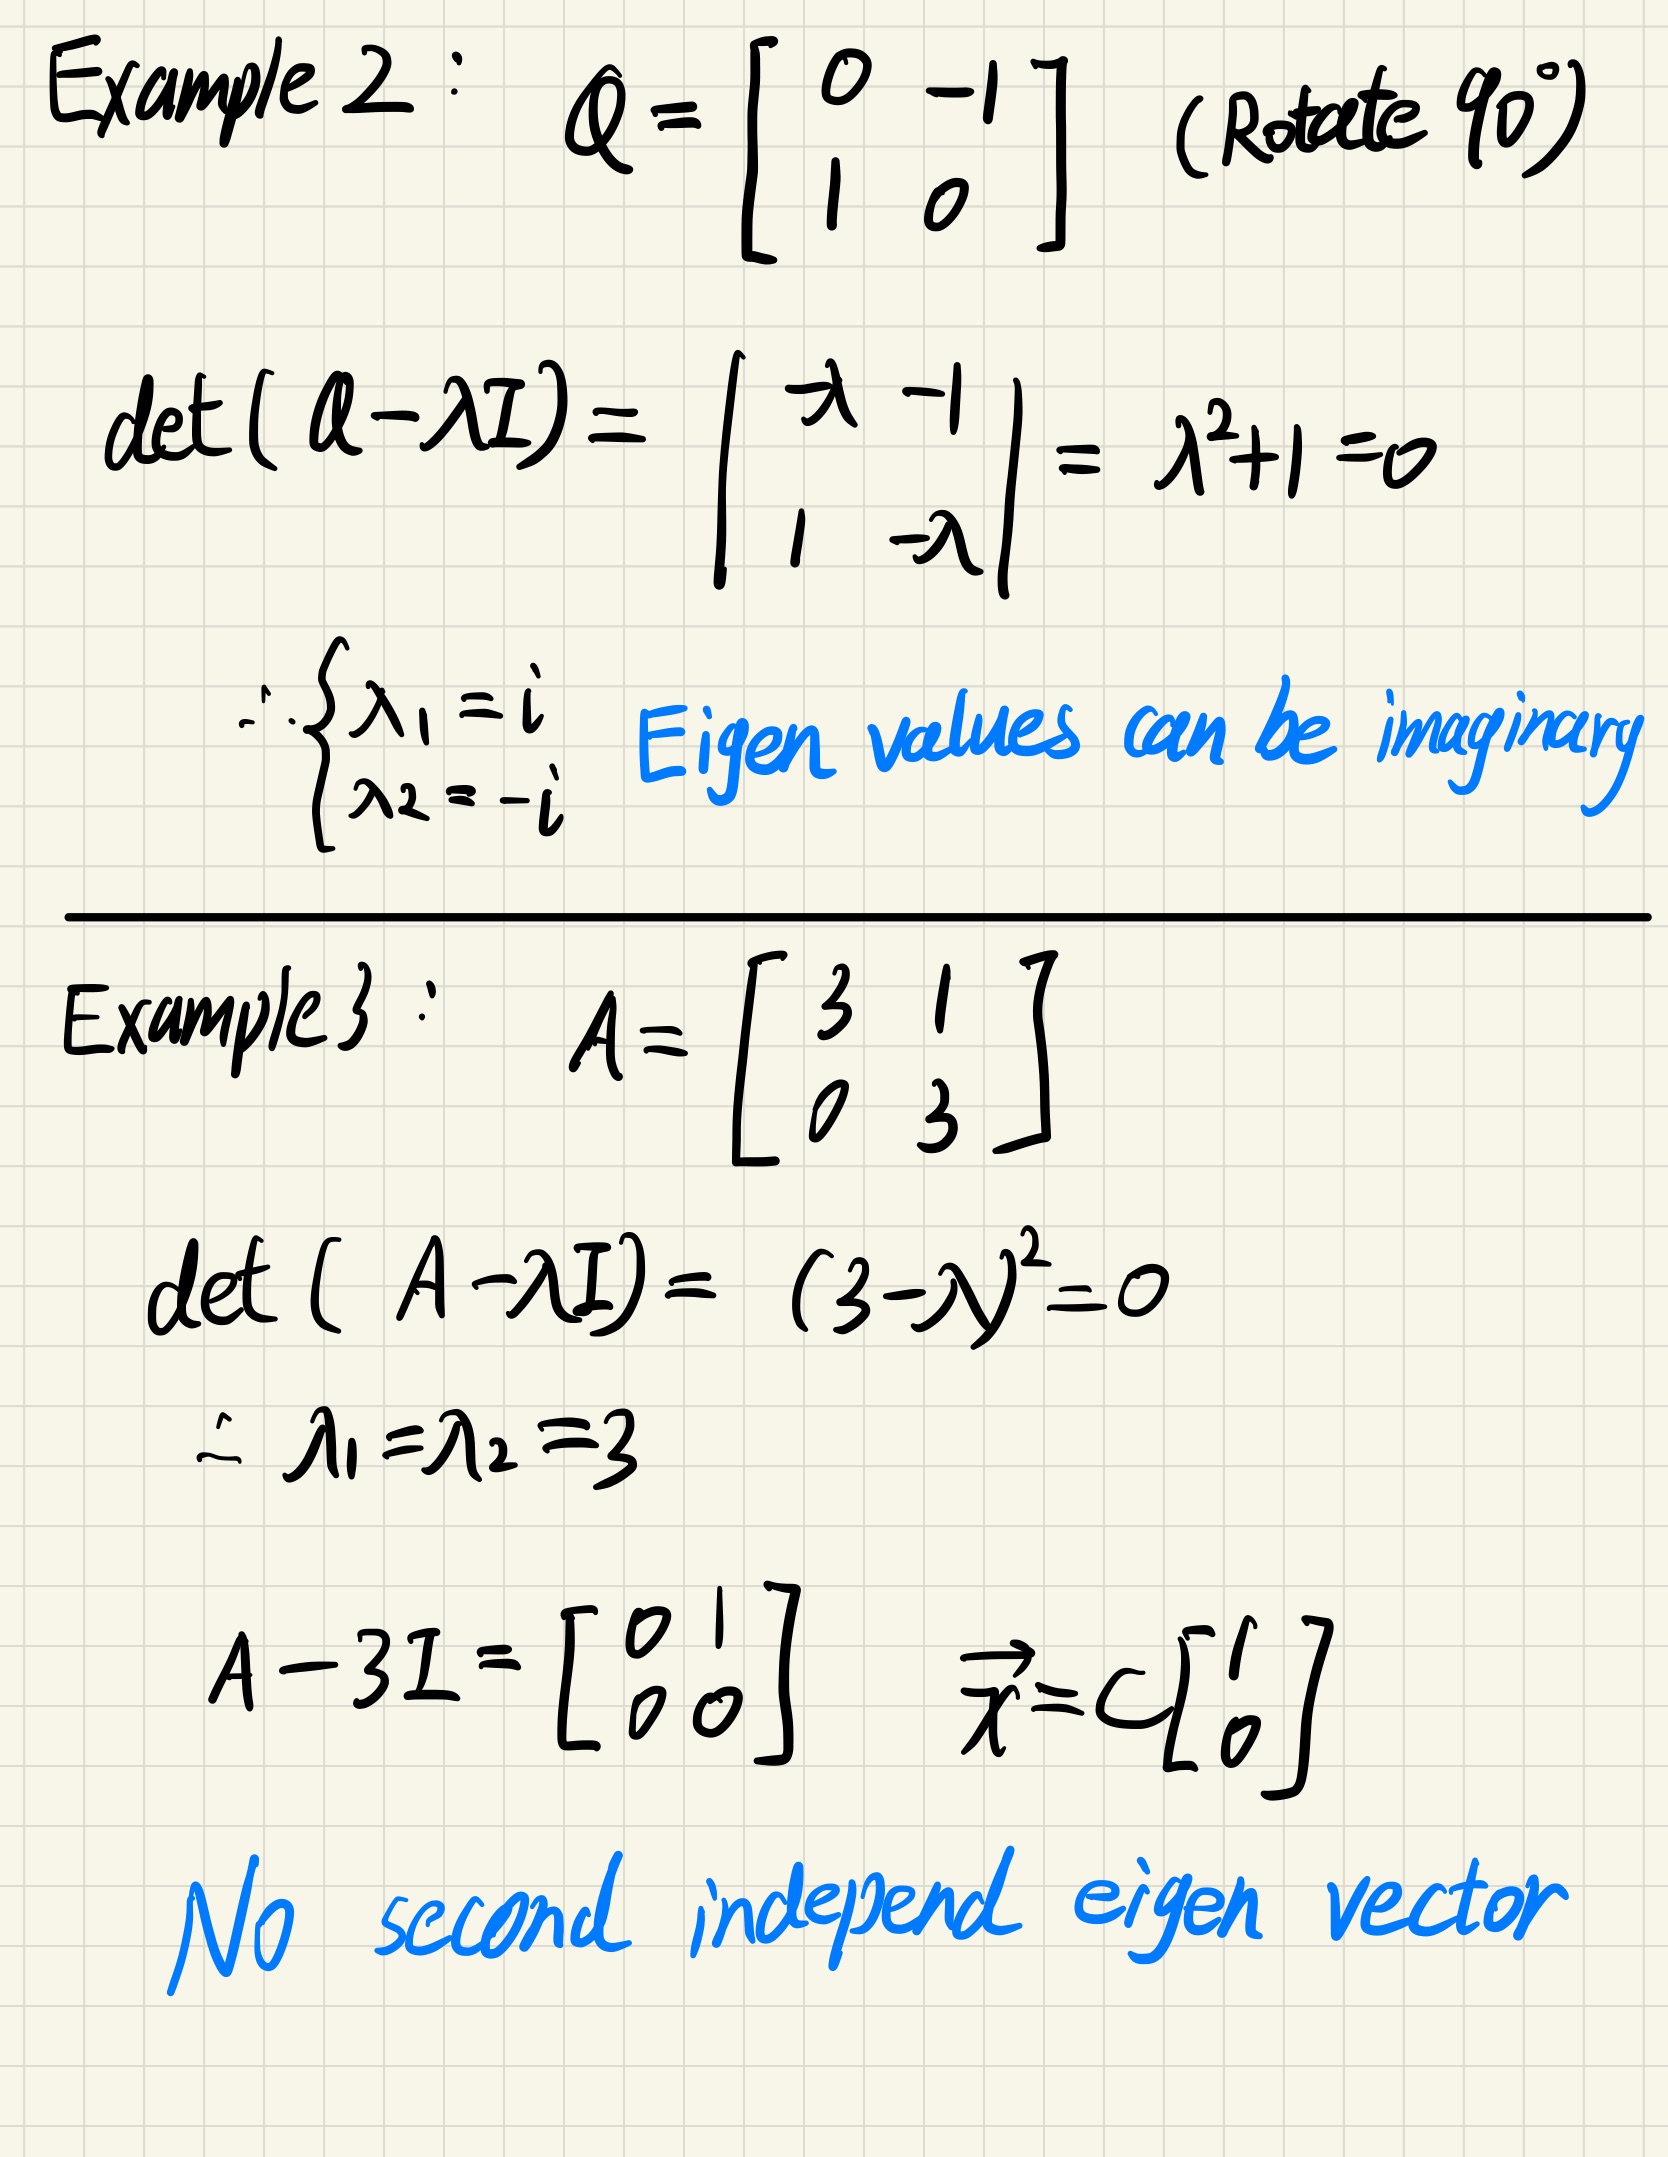 Example 2 : Q = [ 0 -1 ; 1 0 ] (Rotate 90°)
det ( Q - λI ) = | -λ -1 ; 1 -λ | = λ² + 1 = 0
∴ { λ₁ = i
λ₂ = -i
Eigen values can be imaginary
Example 3 : A = [ 3 1 ; 0 3 ]
det ( A - λI ) = (3 - λ)² = 0
∴ λ₁ = λ₂ = 3
A - 3I = [ 0 1 ; 0 0 ] x⃗ = C [ 1 ; 0 ]
No second independ eigen vector